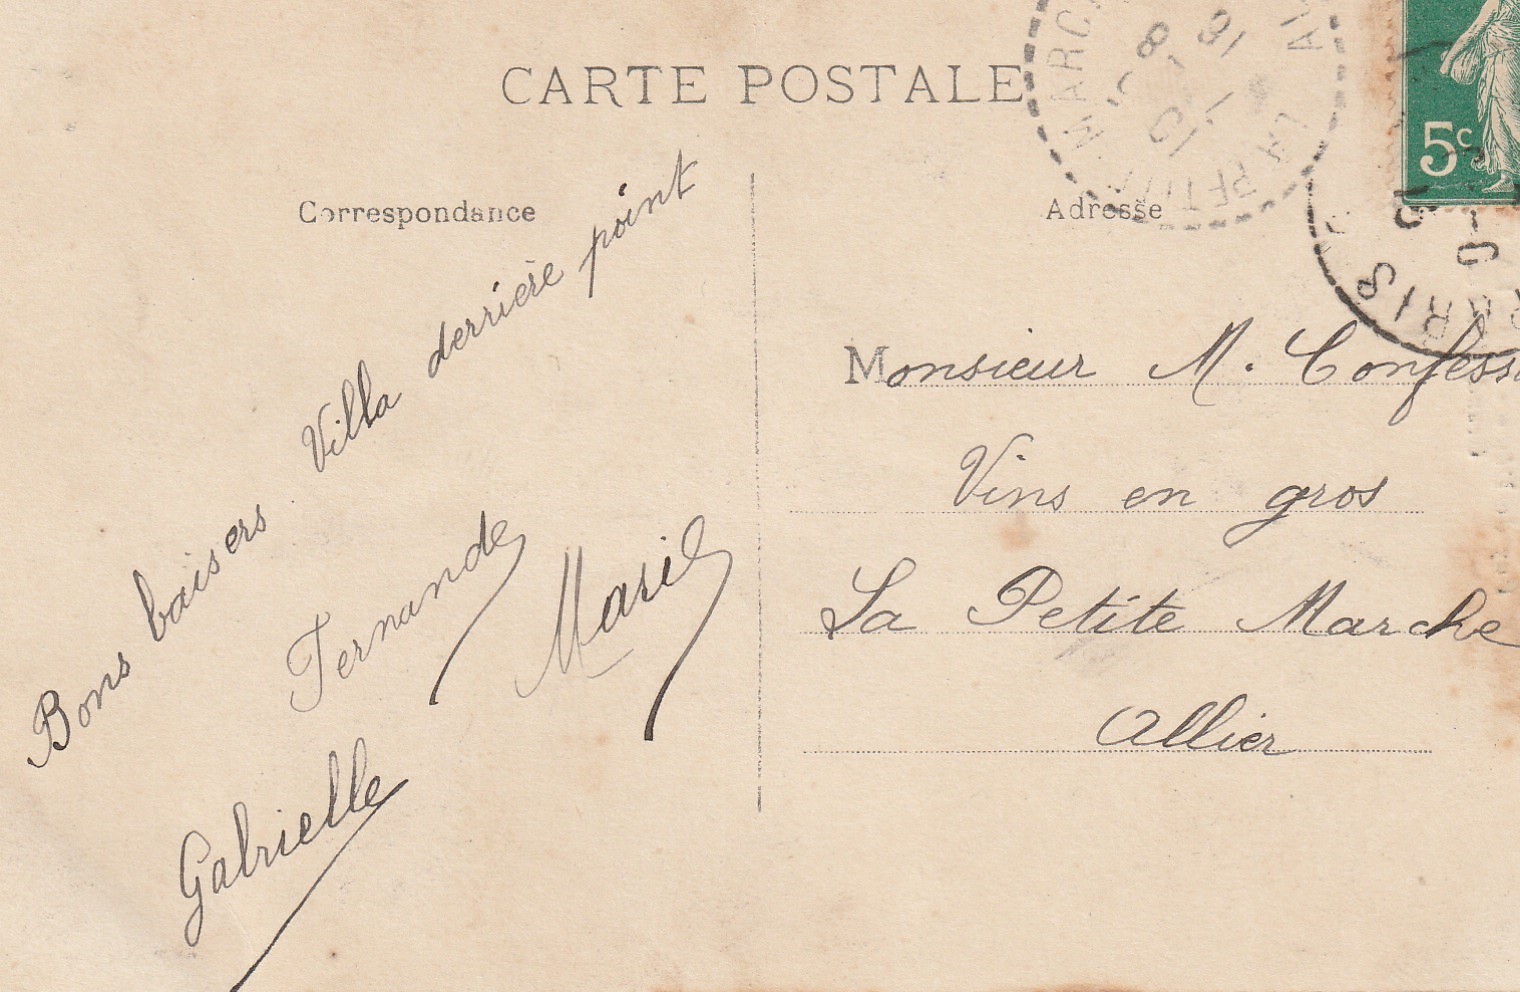 CARTE POSTALE
Correspondance
Adresse
Bons baisers Villa derrière point
Fernande
Marie
Gabrielle
Monsieur M. Confess
Vins en gros
La Petite Marche
Allier
5c
PARIS
LA PETITE MARC